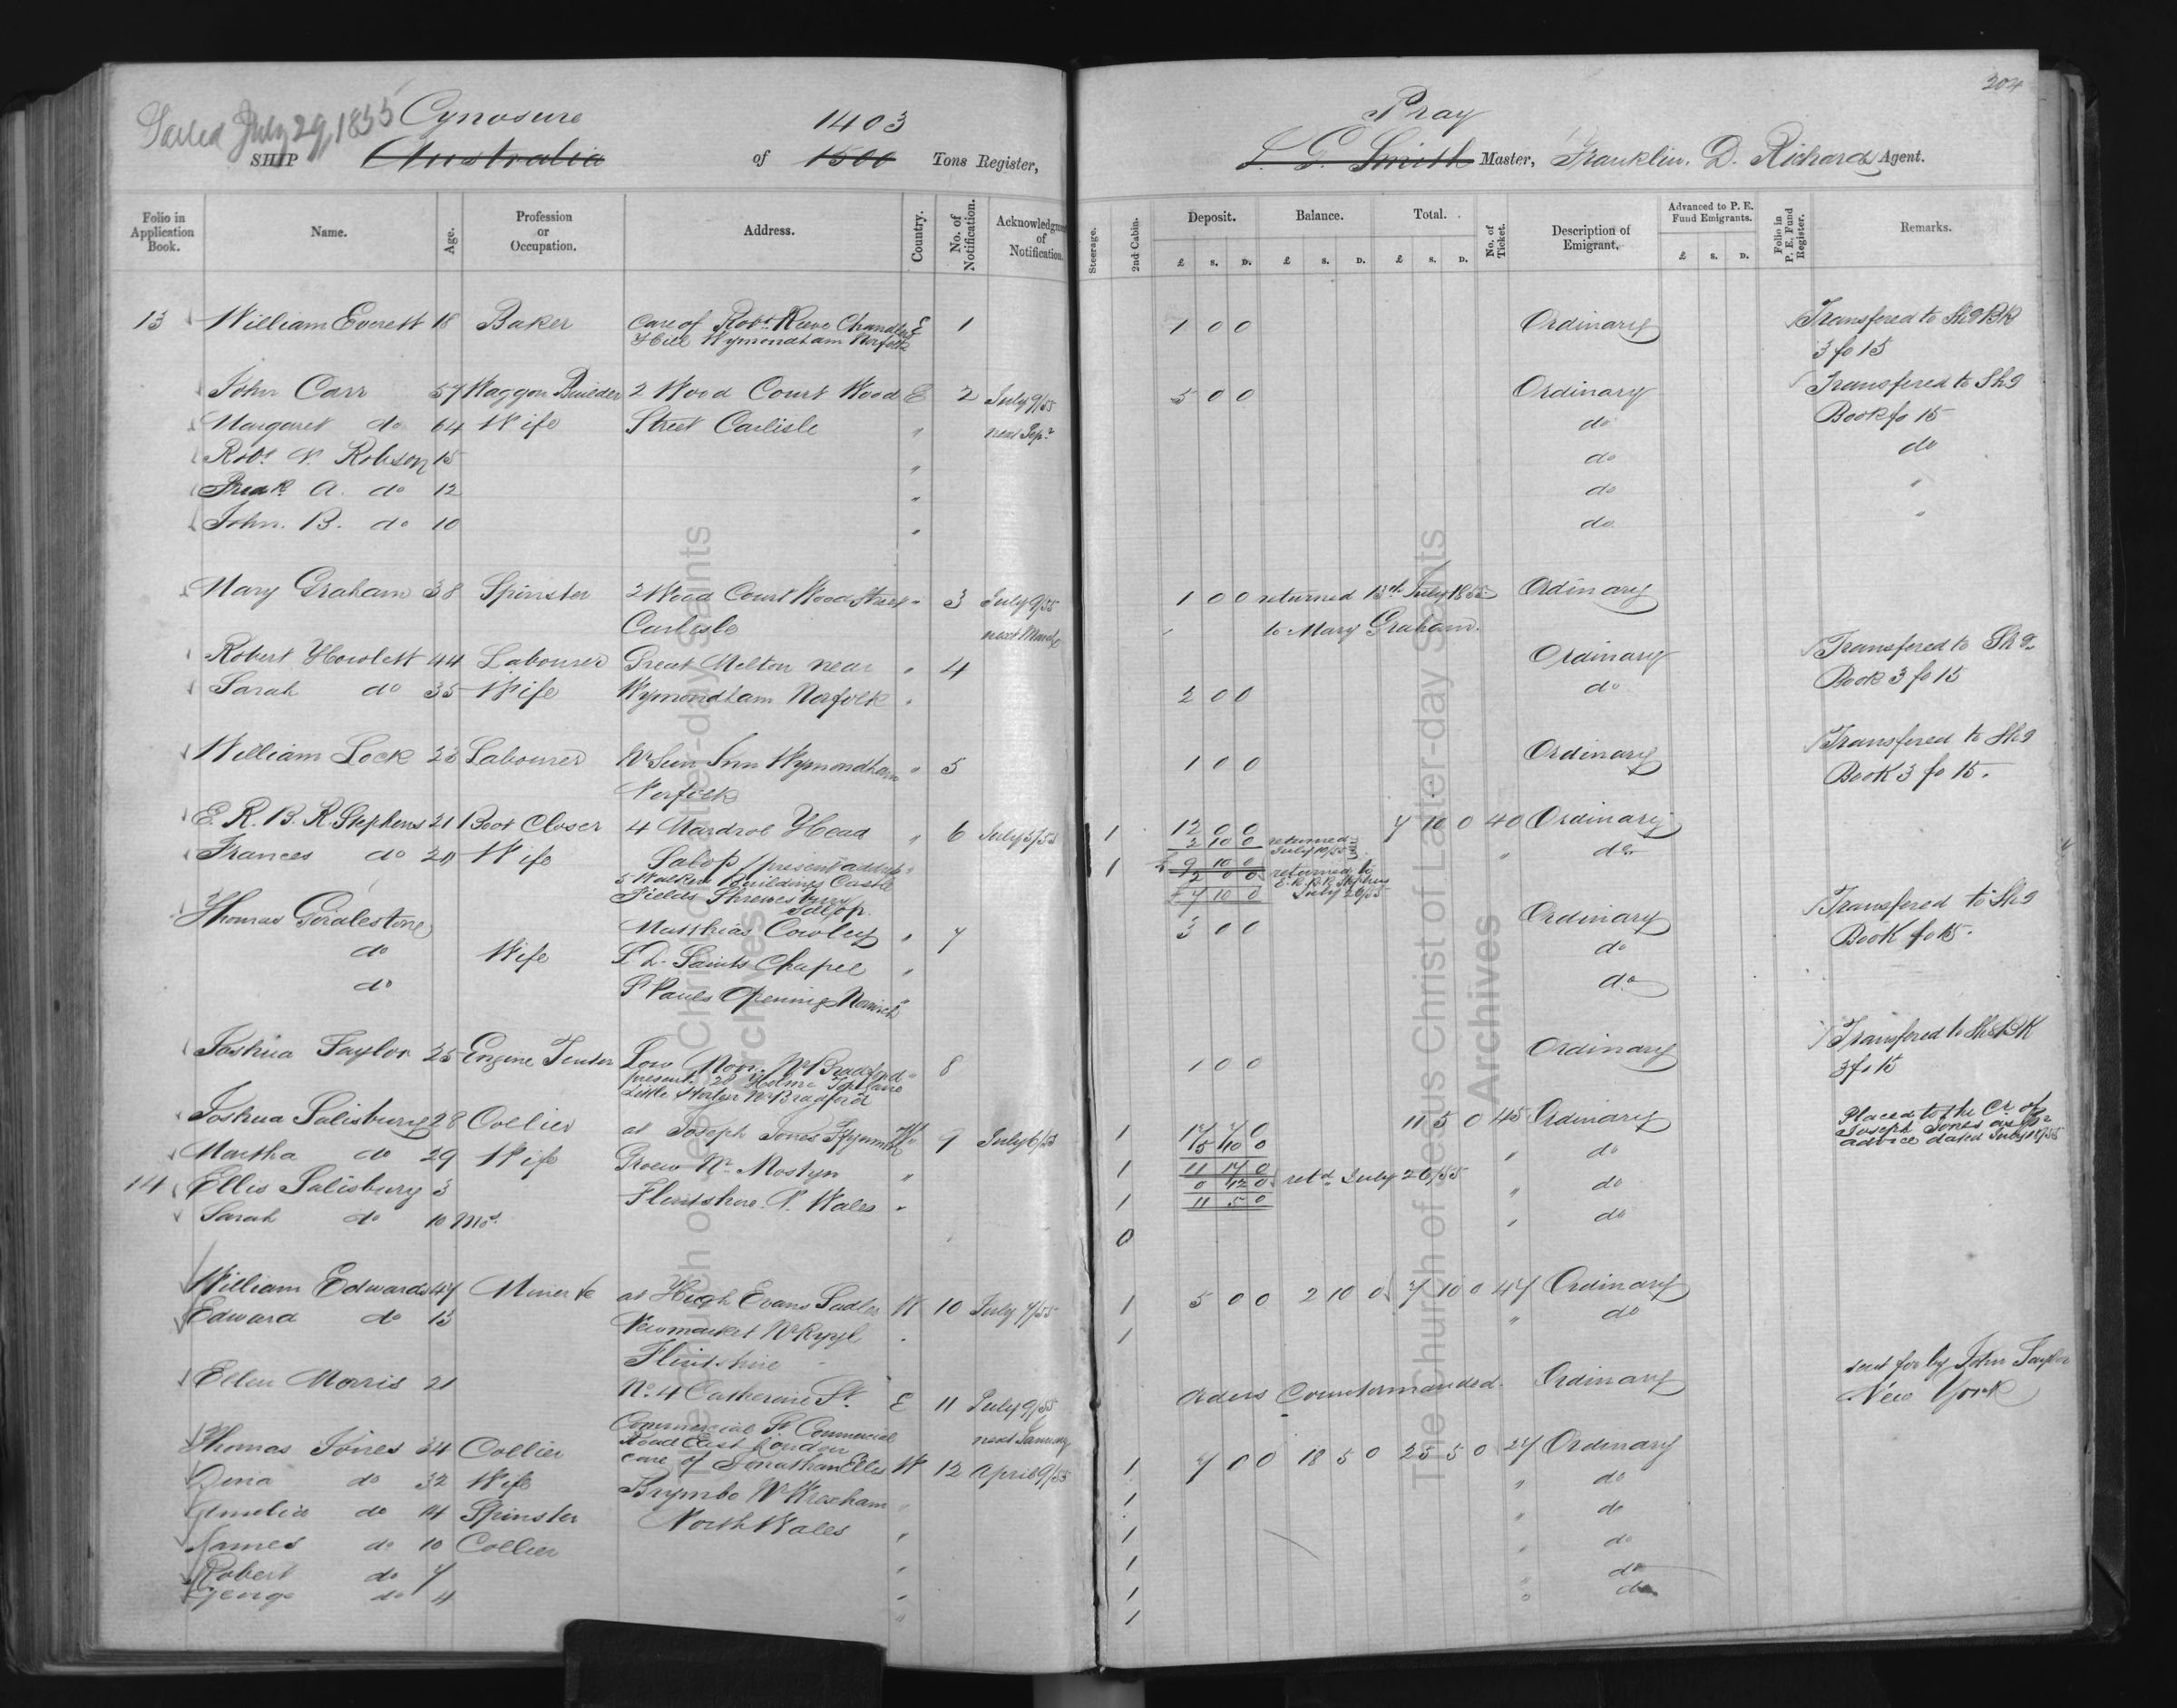 204
Sailed July 29, 1855 Cynosure 1403 Pray
SHIP Australia of 1500 Tons Register, S. G. Smith Master, Franklin. D. Richards Agent.
Folio in Application Book. Name. Age. Profession or Occupation. Address. Country. No. of Notification. Acknowledgment of Notification. Steerage. 2nd Cabin. Deposit. Balance. Total. No. of Ticket. Description of Emigrant. Advanced to P. E. Fund Emigrants. Folio in P. E. Fund Register. Remarks.
£ S. D. £ S. D. £ S. D. £ S. D.
13 William Everett 18 Baker Care of Robt. Reeve Chandlers E 1 1 0 0 Ordinary Transfered to Shg Bk
Hill Wymondham Norfolk 3 fo 15
John Carr 57 Waggon Builder 2 Wood Court Wood E 2 July 9/55 5 0 0 Ordinary Transfered to Shg
Margaret do 64 Wife Street Carlisle " next Sepr do Book fo 15
Robt. N. Robson 15 " do do
Fredk A. do 12 " do "
John. B. do 10 " do "
Mary Graham 38 Spinster 2 Wood Court Wood Street " 3 July 9/55 1 0 0 returned 13th July 1855 Ordinary
Carlisle next March to Mary Graham.
Robert Howlett 44 Labourer Great Melton near " 4 Ordinary Transfered to Shg
Sarah do 35 Wife Wymondham Norfolk " 2 0 0 do Book 3 fo 15
William Lock 23 Labourer Nr Sun Inn Wymondham " 5 1 0 0 Ordinary Transfered to Shg
Norfolk Book 3 fo 15.
E. R. B. R. Stephens 21 Boot Closer 4 Mardrol Head " 6 July 5/55 1 12 0 0 7 10 0 40 Ordinary
2 10 0 returned July 10/55
Frances do 20 Wife Salop / present address " 1 £ 9 10 0 returned to " do
5 Walker Buildings Castle 2 0 0 E. R. B. R. Stephens
Fields Shrewsbury £ 7 10 0 July 26/55
Salop.
Thomas Girdlestone Matthias Cowley " 7 3 0 0 Ordinary Transfered to Shg
do Wife L. D. Saints Chapel " do Book fo 15.
do St Pauls Opening Norwich " do
Joshua Taylor 25 Engine Tenter Low Moor Nr Bradford " 8 1 0 0 Ordinary Transfered to Sh BK
present. 20 Holme Top Lane 3 fo 15
Little Horton Nr Bradford
Joshua Salisbury 28 Collier at Joseph Jones W 9 July 6/55 1 17 7 0 11 5 0 45 Ordinary Placed to the Cr of
15 10 0 Joseph Jones as per
advice dated July 18/55
Martha do 29 Wife Groew Nr. Mostyn " 1 11 17 0 " do
14 Ellis Salisbury 3 Flintshire. N. Wales " 1 0 12 0 retd July 26/55 " do
Sarah do 10 Mos. 0 11 5 0 " do
William Edwards 47 Miner &c at Hugh Evans Sadler W 10 July 7/55 1 5 0 0 2 10 0 7 10 0 47 Ordinary
Edward do 13 Newmarket Nr Rhyl " 1 " do
Flintshire
Ellen Morris 21 No. 4 Catherine St. E 11 July 9/55 Orders Countermanded. Ordinary sent for by John Taylor
Commercial St Commercial next January New York
Road East London
Thomas Jones 34 Collier care of Jonathan Ellis W 12 April 9/55 1 7 0 0 18 5 0 25 5 0 27 Ordinary
do 32 Wife Brymbo Nr Wrexham " 1 " do
Amelia do 14 Spinster North Wales " 1 " do
James do 10 Collier " 1 " do
Robert do 7 " 1 " do
George do 4 " 1 " do
The Church of Jesus Christ of Latter-day Saints
Archives
The Church of Jesus Christ of Latter-day Saints
Archives